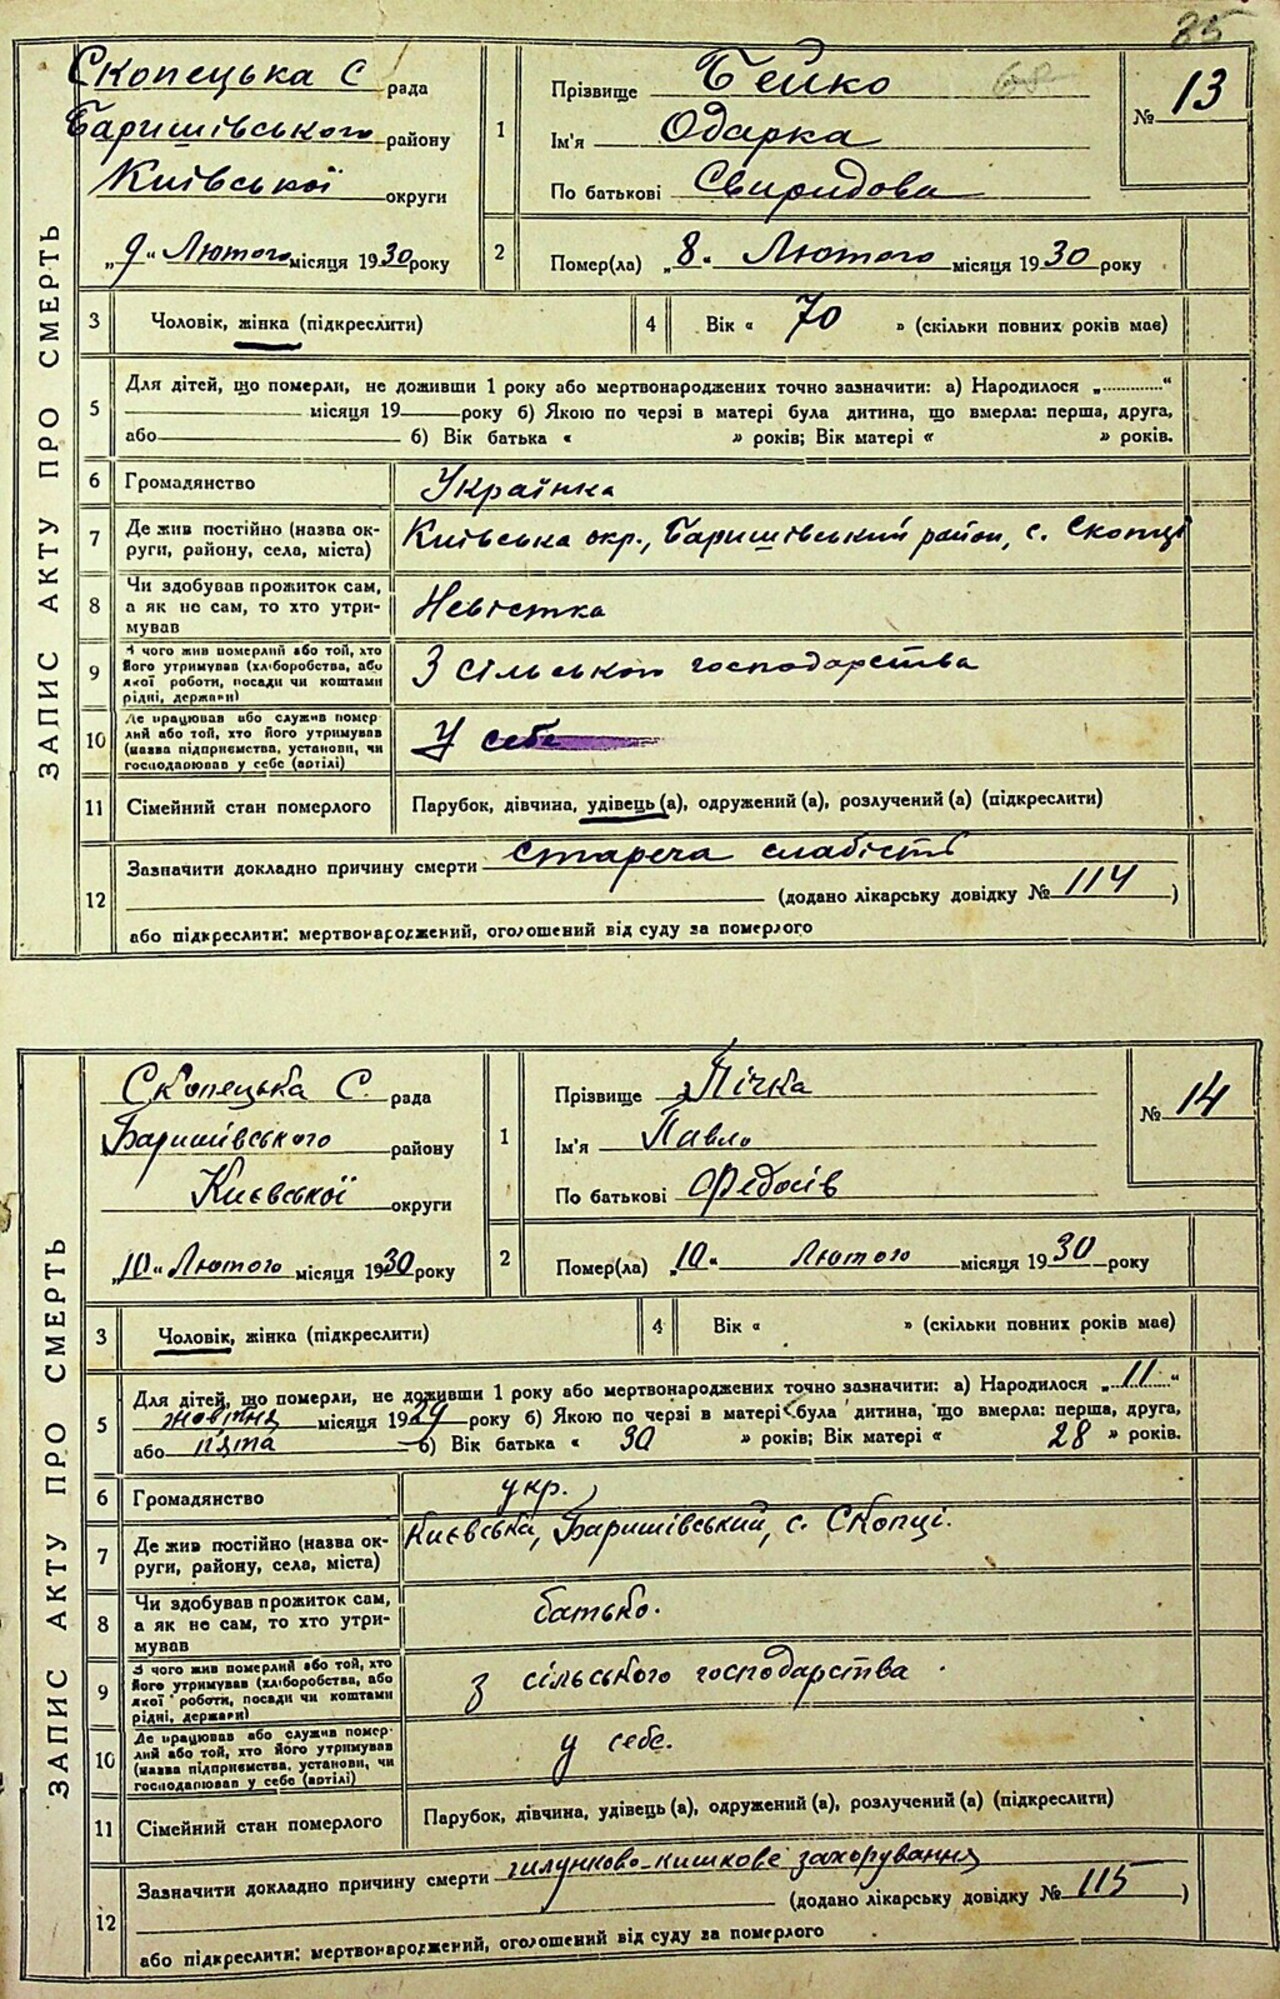 35
ЗАПИС АКТУ ПРО СМЕРТЬ
Скопецька С рада
Баришівського району
Київської округи
„9“ Лютого місяця 1930 року
1
Прізвище Бейко 68
Ім'я Одарка
По батькові Свиридова
№ 13
2 Помер(ла) „8“ Лютого місяця 1930 року
3 Чоловік, жінка (підкреслити)
4 Вік « 70 » (скільки повних років має)
5 Для дітей, що померли, не доживши 1 року або мертвонароджених точно зазначити: а) Народилося „............“
місяця 19 року б) Якою по черзі в матері була дитина, що вмерла: перша, друга,
або б) Вік батька « » років; Вік матері « » років.
6 Громадянство Українка
7 Де жив постійно (назва ок-
руги, району, села, міста) Київська окр., Баришівський район, с. Скопці
8 Чи здобував прожиток сам,
а як не сам, то хто утри-
мував Невістка
9 З чого жив померлий або той, хто
його утримував (хліборобства, або
якої роботи, посади чи коштами
рідні, держави) З сільського господарства
10 Де працював або служив помер-
лий або той, хто його утримував
(назва підприємства, установи, чи
господарював у себе (артілі) У себе
11 Сімейний стан померлого Парубок, дівчина, удівець (а), одружений (а), розлучений (а) (підкреслити)
12 Зазначити докладно причину смерти стареча слабість
(додано лікарську довідку № 114)
або підкреслити: мертвонароджений, оголошений від суду за померлого
ЗАПИС АКТУ ПРО СМЕРТЬ
Скопецька С. рада
Баришівського району
Києвської округи
„10“ Лютого місяця 1930 року
1
Прізвище Лічка
Ім'я Павло
По батькові Федосів
№ 14
2 Помер(ла) „10“ Лютого місяця 1930 року
3 Чоловік, жінка (підкреслити)
4 Вік « » (скільки повних років має)
5 Для дітей, що померли, не доживши 1 року або мертвонароджених точно зазначити: а) Народилося „11“
жовтня місяця 1929 року б) Якою по черзі в матері була дитина, що вмерла: перша, друга,
або п'ята б) Вік батька « 30 » років; Вік матері « 28 » років.
6 Громадянство укр.
7 Де жив постійно (назва ок-
руги, району, села, міста) Києвська, Баришівський, с. Скопці.
8 Чи здобував прожиток сам,
а як не сам, то хто утри-
мував батько.
9 З чого жив померлий або той, хто
його утримував (хліборобства, або
якої роботи, посади чи коштами
рідні, держави) з сільського господарства
10 Де працював або служив помер-
лий або той, хто його утримував
(назва підприємства, установи, чи
господарював у себе (артілі) у себе.
11 Сімейний стан померлого Парубок, дівчина, удівець (а), одружений (а), розлучений (а) (підкреслити)
12 Зазначити докладно причину смерти шлунково-кишкове захорування
(додано лікарську довідку № 115)
або підкреслити: мертвонароджений, оголошений від суду за померлого